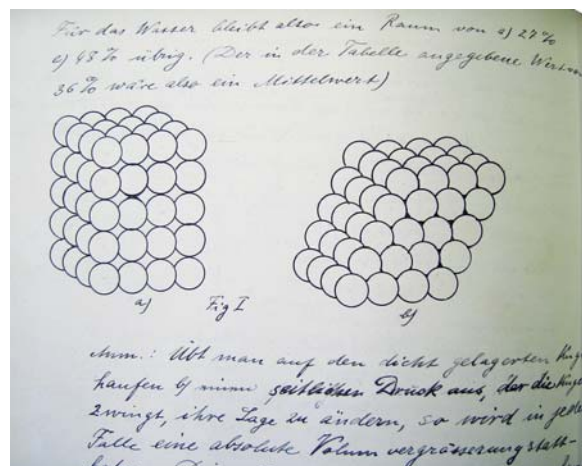 Für das Wasser bleibt also ein Raum von a) 27%
e) 48% übrig. (Der in der Tabelle angegebene Wert
36% wäre also ein Mittelwert)
a)
Fig I
b)
Anm.: Übt man auf den dicht gelagerten
haufen b) einen seitlichen Druck aus, der die
zwingt, ihre Lage zu ändern, so wird in
Falle eine absolute Volumvergrösserung statt-